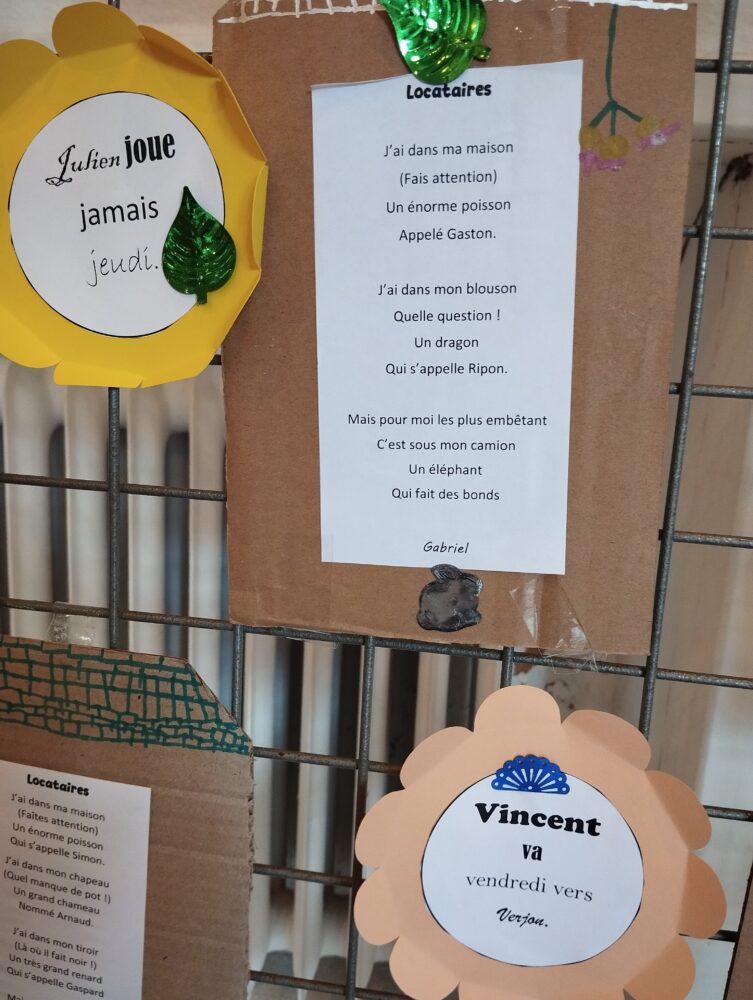 Julien joue
jamais
jeudi.
Locataires
J'ai dans ma maison
(Fais attention)
Un énorme poisson
Appelé Gaston.
J'ai dans mon blouson
Quelle question !
Un dragon
Qui s'appelle Ripon.
Mais pour moi les plus embêtant
C'est sous mon camion
Un éléphant
Qui fait des bonds
Gabriel
Locataires
J'ai dans ma maison
(Faîtes attention)
Un énorme poisson
Qui s'appelle Simon.
J'ai dans mon chapeau
(Quel manque de pot !)
Un grand chameau
Nommé Arnaud.
J'ai dans mon tiroir
(Là où il fait noir !)
Un très grand renard
Qui s'appelle Gaspard
Vincent
va
vendredi vers
Verjon.